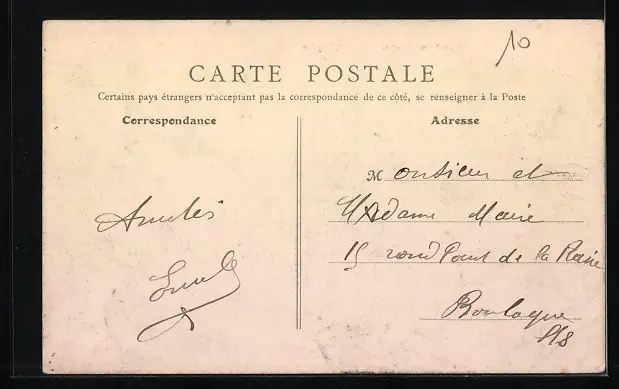 10
CARTE POSTALE
Certains pays étrangers n'acceptant pas la correspondance de ce côté, se renseigner à la Poste
Correspondance
Adresse
Monsieur et
Madame Maire
15 rond Point de la Reine
Boulogne
S/S
Amitiés